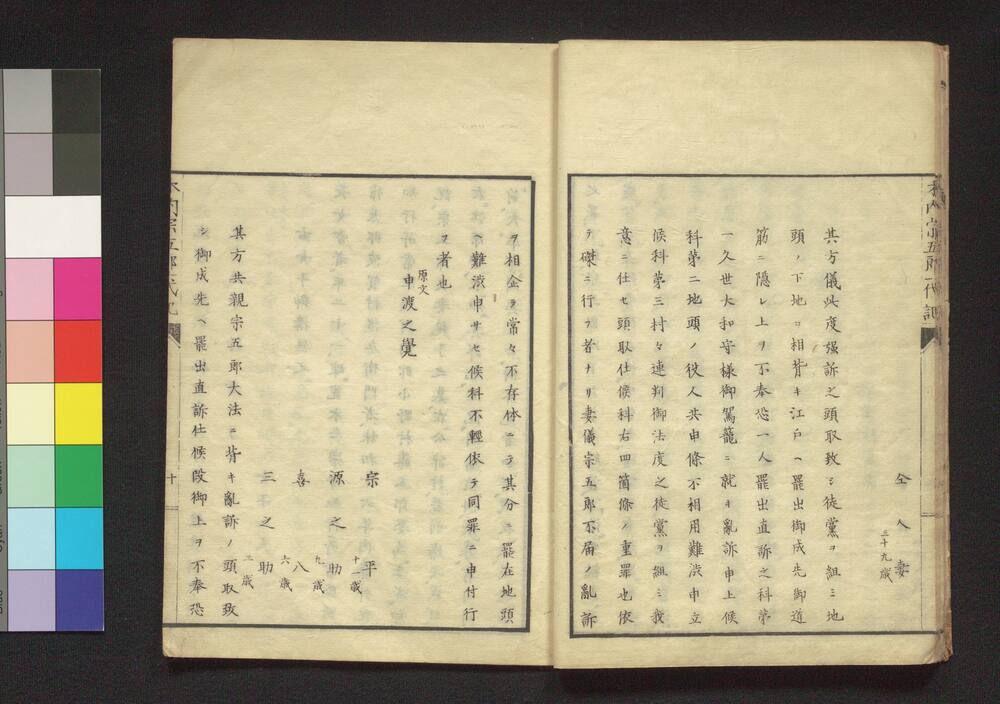 仝人妻
三十九歳
其方儀此度强訴之頭取致シ徒黨ヲ組ミ地
頭ノ下地ヲ相背キ江戸ヘ罷出御成先御道
筋ニ隠レ上ヲ不奉恐一人罷出直訴之科第
一久世大和守様御駕籠ニ就キ亂訴申上候
科第二地頭ノ役人共申條不相用難渋申立
候科第三村々連判御法度之徒黨ヲ組ミ我
意ニ仕セ頭取仕候科右四箇條ノ重罪也依
テ磔ニ行フ者ナリ妻儀宗五郎不届ノ亂訴
ヲ相企ヲ常々不存体ニテ其分ニ罷在地頭
ヘ難渋申サセ候科不輕依テ同罪ニ申付行
フ者也
原文
申渡之覺
宗平
十一歳
源之助
九歳
喜八
六歳
三之助
三歳
其方共親宗五郎大法ニ背キ亂訴ノ頭取致
シ御成先ヘ罷出直訴仕候段御上ヲ不奉恐
木内宗五郎一代記
十